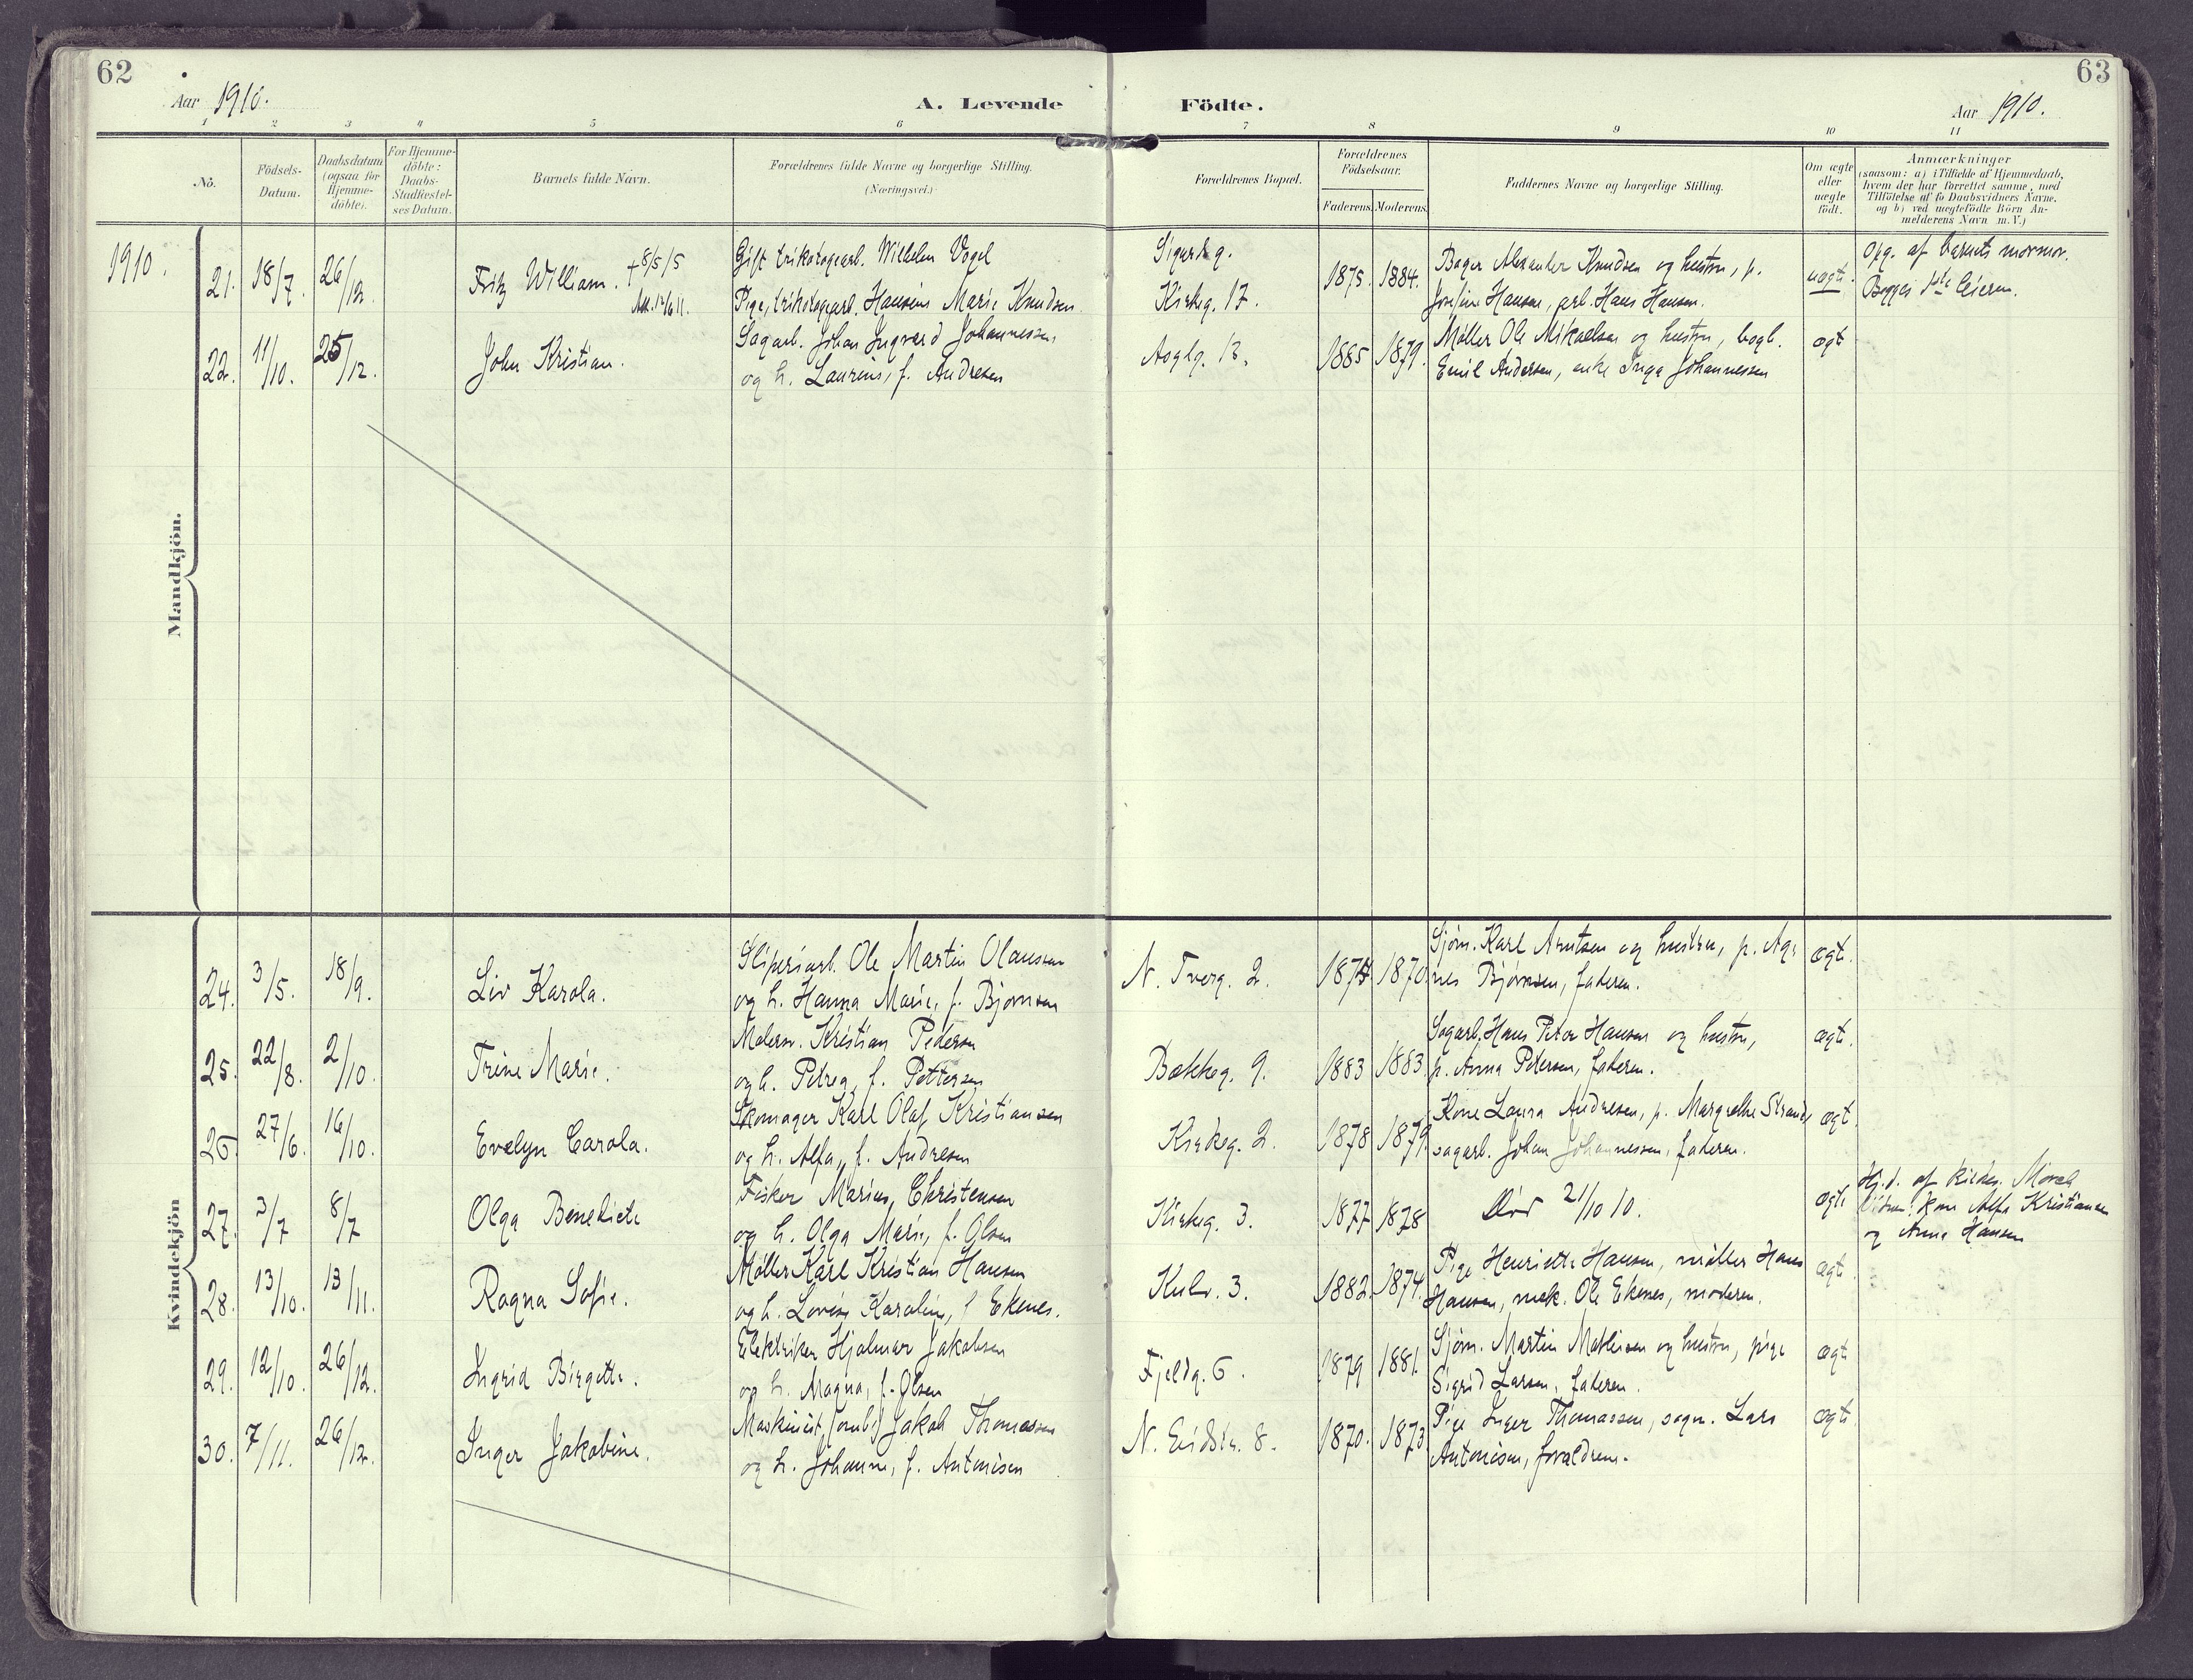 62
Aar 1910.
A. Levende Födte.
Aar 1910.
63
1 2 3 4 5 6 7 8 9 10 11
No.
Födsels-
Datum.
Daabsdatum
(ogsaa for
Hjemme-
döbte).
For Hjemme-
döbte:
Daabs-
Stadfæstel-
ses Datum.
Barnets fulde Navn.
Forældrenes fulde Navne og borgerlige Stilling.
(Næringsvei.)
Forældrenes Bopæl.
Forældrenes
Födselsaar.
Faderens. Moderens.
Faddernes Navne og borgerlige Stilling.
Om ægte
eller
uægte
födt.
Anmærkninger
(saasom: a) i Tilfælde af Hjemmedaab,
hvem der har forrettet samme, med
Tilföielse af to Daabsvidners Navne,
og b) ved uægtefödte Börn An-
melderens Navn m. V.)
1910.
Mandkjön.
21. 18/7. 26/12. Fritz William. + 8/5/5
Gift trikotagearb. Wilhelm Vogel
Pige, trikotagearb. Hansine Marie Knudsen
Sigurdg.
Kirkeg. 17.
1875. 1884.
Bager Alexander Knudsen og hustru, p.
Josefine Hansen, arb. Hans Hansen.
uægte.
Opg. af barnets mormor.
Begges 1ste leierm.
22. 11/10. 25/12. John Kristian.
Sagarb. Johan Ingvard Johannessen
og h. Laurine, f. Andresen
Asylg. 13.
1885 1879.
Møller Ole Mikaelsen og hustru, bogb.
Emil Andersen, enke Inga Johannessen
ægt
Kvindekjön
24. 3/5. 18/9. Liv Karola.
Sliperiarb. Ole Martin Olaussen
og h. Hanna Marie, f. Bjørnsen
N. Tverg. 2.
1874 1870
Sjøm. Karl Arntsen og hustru, p. Ag-
nes Bjørnsen, faderen.
ægt.
25. 22/8. 2/10. Trine Marie.
Malersv. Kristian Pedersen
og h. Petrea, f. Pettersen
Bækkeg. 9.
1883 1883
Sagarb. Hans Peter Hansen og hustru,
p. Anna Petersen, faderen.
ægt.
26 27/6. 16/10. Evelyn Carola.
Skomager Karl Olaf Kristiansen
og h. Alfa, f. Andresen
Kirkeg. 2.
1878 1879
Kone Laura Andresen, p. Margrethe Strand,
sagarb. Johan Johannessen, faderen.
ægt.
27. 3/7 8/7 Olga Benedicte
Fisker Marius Christensen
og h. Olga Marie, f. Olsen
Kirkeg. 3.
1877 1878
Død 21/10 10.
ægte
Hj.d. af
Kone Alfa Kristiansen
og Anna Hansen
28. 13/10. 13/11. Ragna Sofie.
Møller Karl Kristian Hansen
og h. Lovise Karoline, f. Ekenes.
Kulv. 3.
1882. 1874.
Pige Henriette Hansen, møller Hans
Hansen, mek. Ole Ekenes, moderen.
ægt.
29. 12/10. 26/12. Ingrid Birgitte.
Elektriker Hjalmar Jakobsen
og h. Magna, f. Olsen
Fjeldg. 6.
1879 1881.
Sjøm. Martin Mathisen og hustru, pige
Sigrid Larsen, faderen.
ægt
30. 7/11. 26/12. Inger Jakobine.
Maskinist, Jakob Thomassen
og h. Johanne, f. Antonisen
N. Eidstr. 8.
1870. 1873.
Pige Inger Thomassen, sagm. Lars
Antonisen, forældrene.
ægte